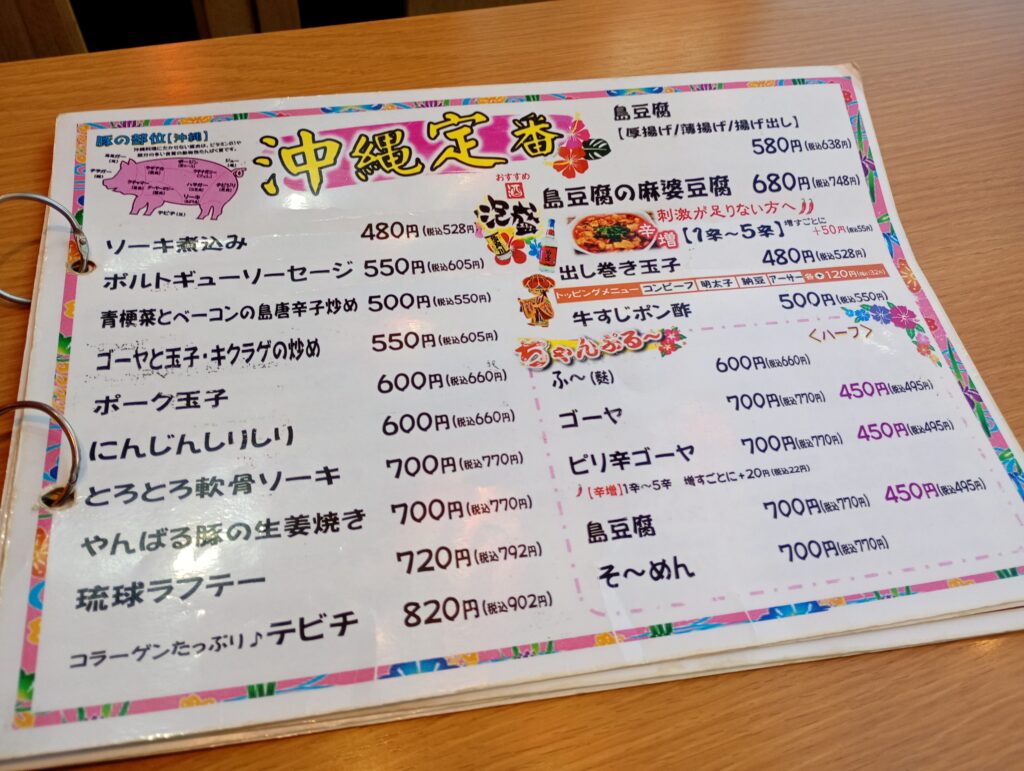 豚の部位【沖縄】
沖縄定番
おすすめ
酒
泡盛
ソーキ煮込み 480円(税込528円)
ポルトギューソーセージ 550円(税込605円)
青梗菜とベーコンの島唐辛子炒め 500円(税込550円)
ゴーヤと玉子・キクラゲの炒め 550円(税込605円)
ポーク玉子 600円(税込660円)
にんじんしりしり 600円(税込660円)
とろとろ軟骨ソーキ 700円(税込770円)
やんばる豚の生姜焼き 700円(税込770円)
琉球ラフテー 720円(税込792円)
コラーゲンたっぷり♪テビチ 820円(税込902円)
島豆腐
【厚揚げ/薄揚げ/揚げ出し】
580円(税込638円)
島豆腐の麻婆豆腐 680円(税込748円)
刺激が足りない方へ
辛増【1辛～5辛】増すごとに+50円(税込55円)
出し巻き玉子 480円(税込528円)
トッピングメニュー コンビーフ 明太子 納豆 アーサー 各+120円(税込132円)
牛すじポン酢 500円(税込550円)
ちゃんぷる～
<ハーフ>
ふ～(麩) 600円(税込660円)
ゴーヤ 700円(税込770円) 450円(税込495円)
ピリ辛ゴーヤ 700円(税込770円) 450円(税込495円)
【辛増】1辛～5辛 増すごとに+20円(税込22円)
島豆腐 700円(税込770円) 450円(税込495円)
そ～めん 700円(税込770円)